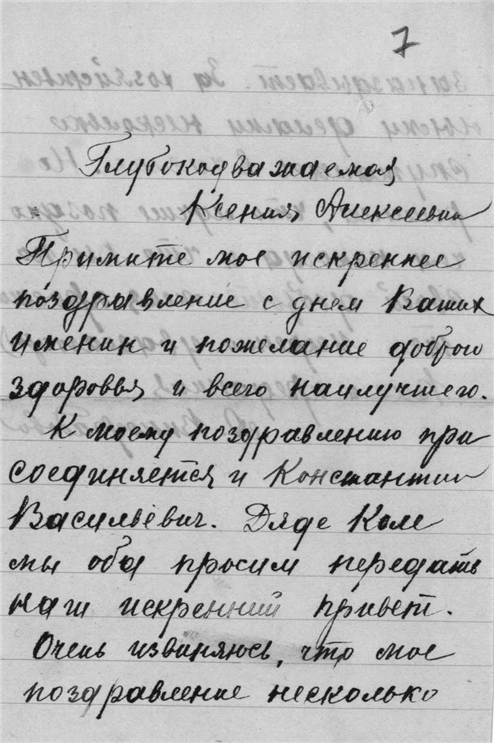 7
Глубокоуважаемая
Ксения Алексеевна
Примите мое искреннее
поздравление с днем Ваших
именин и пожелание доброго
здоровья и всего наилучшего.
К моему поздравлению при
соединяется и Константин
Васильевич. Дяде Коле
мы оба просим передать
наш искренний привет.
Очень извиняюсь, что мое
поздравление несколько